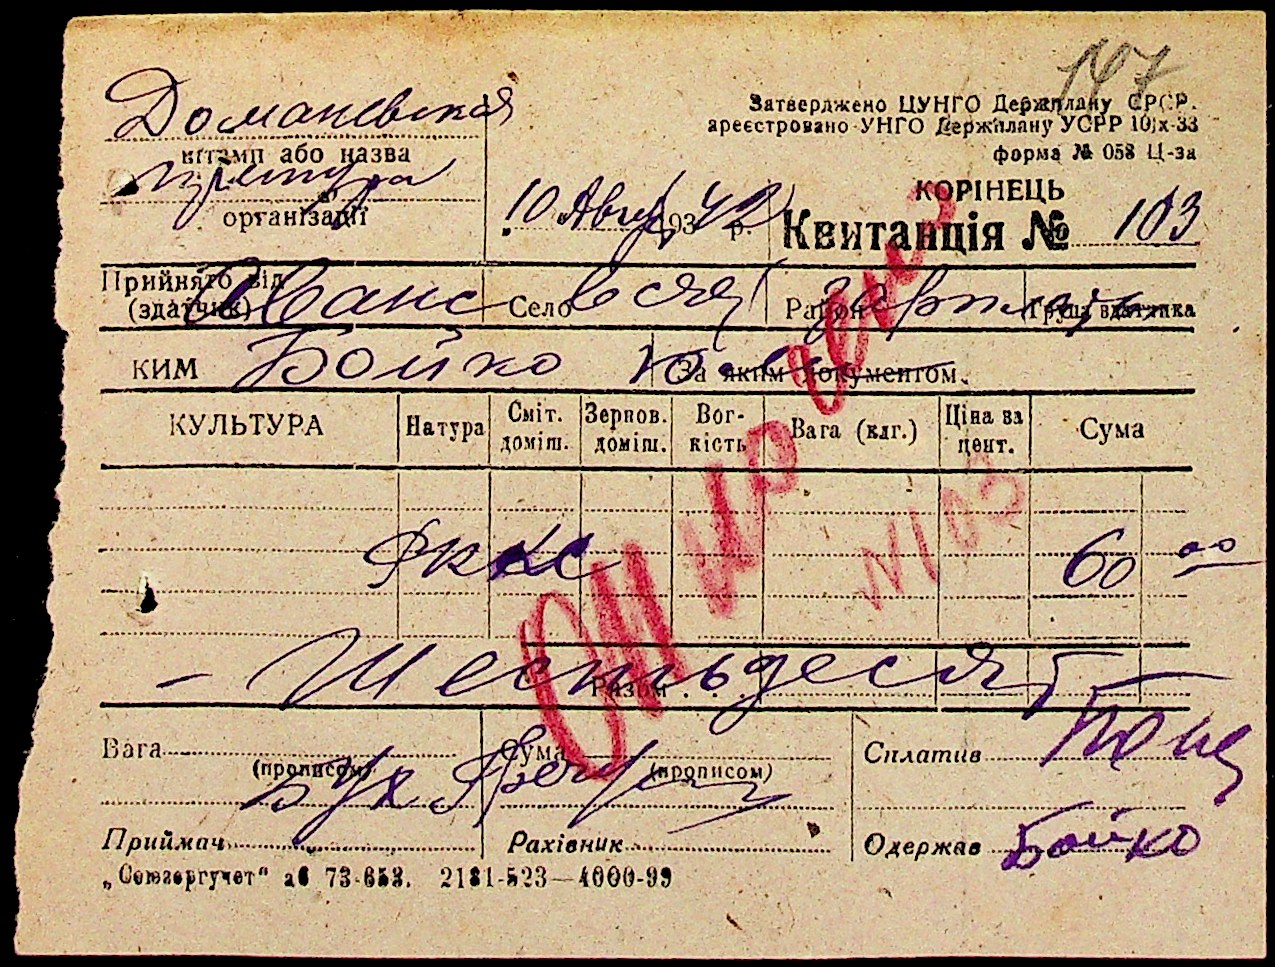 147
Доманевская
Затверджено ЦУНГО Держплану СРСР.
ареєстровано УНГО Держплану УСРР 10|х-33
форма № 058 Ц-за
штамп або назва
організації
КОРІНЕЦЬ
10 Авг 1942 р. Квитанція № 103
Прийнято від
(здатчик) Аванс Село в счет Район зарпл Група здатчика
КИМ Бойко За яким документом.
КУЛЬТУРА Натура Сміт. доміш. Зернов. доміш. Вог-кість Вага (клг.) Ціна за цент. Сума
№103
60 00
– Шестьдесят –
Разом
Вага (прописом) Сума (прописом) Сплатив
Бух
Приймач Рахівник Одержав Бойко
„Союзоргучет“ 73-658. 2181-523—4000-99